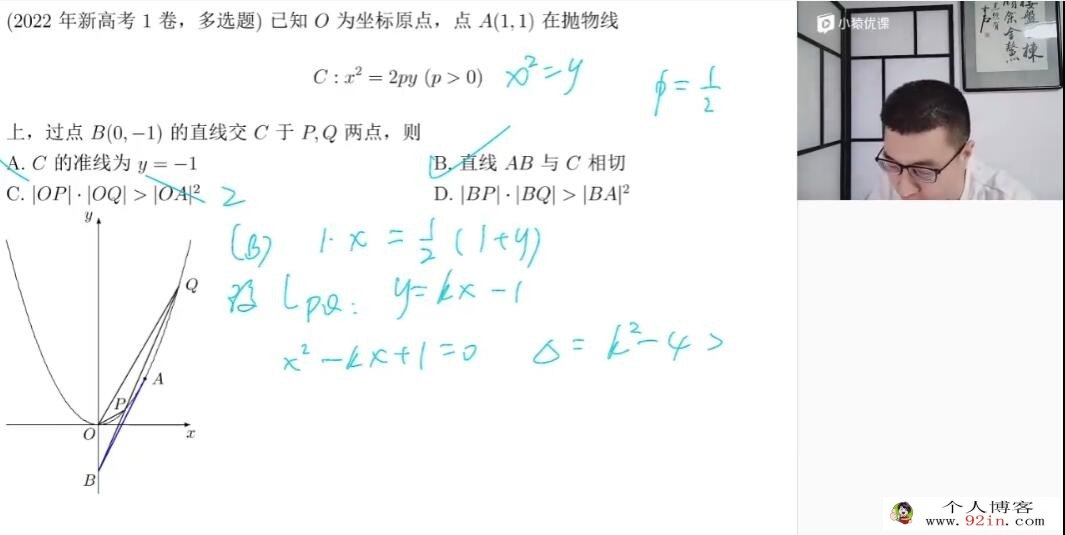 (2022 年新高考 1 卷，多选题) 已知 O 为坐标原点，点 A(1,1) 在抛物线
C : x² = 2py (p > 0) x² = y p = 1/2
上，过点 B(0,−1) 的直线交 C 于 P,Q 两点，则
A. C 的准线为 y = −1 B. 直线 AB 与 C 相切
C. |OP| · |OQ| > |OA|² 2 D. |BP| · |BQ| > |BA|²
(B) 1·x = 1/2 (1+y)
设 l PQ: y = kx − 1
x² − kx + 1 = 0 Δ = k² − 4 >
y
Q
A
P
O
x
B
小猿优课
个人博客
www.92in.com